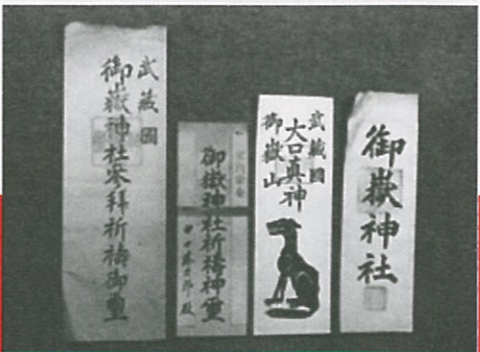 武蔵國
御嶽神社参拝祈祷御璽
御嶽神社祈祷神璽
殿
武蔵國
大口真神
御嶽山
御嶽神社